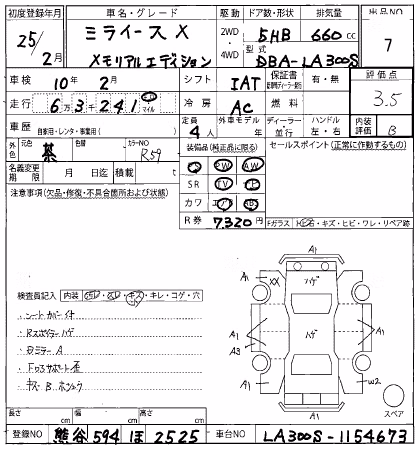 初度登録年月 車名・グレード 駆動 ドア数・形状 排気量 出品NO
25/2月 ミライース X 2WD 5HB 660cc 7
Xメモリアルエディション 4WD 型式 DBA-LA300S
車検 10年2月 シフト IAT 保証書 有・無 評価点
走行 6万3千241 km マイル 冷房 AC 燃料 3.5
車歴 自家用・レンタ・事業用( ) 定員 4人 外車モデル 年 ディーラー・並行 ハンドル 左・右 内装評価 B
外色 元色 色替 カラーNO R59 装備品(純正品に限る) セールスポイント(正常に作動するもの)
名義変更期限 月 日迄 積載 t PS PW AW
注意事項(欠品・修復・不具合箇所および状態) SR TV
カワ エアB ABS
R券 7,320円 Fガラス キズ・ヒビ・ワレ・リペア跡
A1
A1 XX ハゲ A1
検査員記入 内装 キズ・キレ・コゲ・穴
・シートカバー付
・Rスポイラーハゲ ハゲ
A1 A1
A3
A1 W2
A1
スペア
長さ cm 幅 cm 高さ cm
登録NO 熊谷 594 ほ 2525 車台NO LA300S-1154673